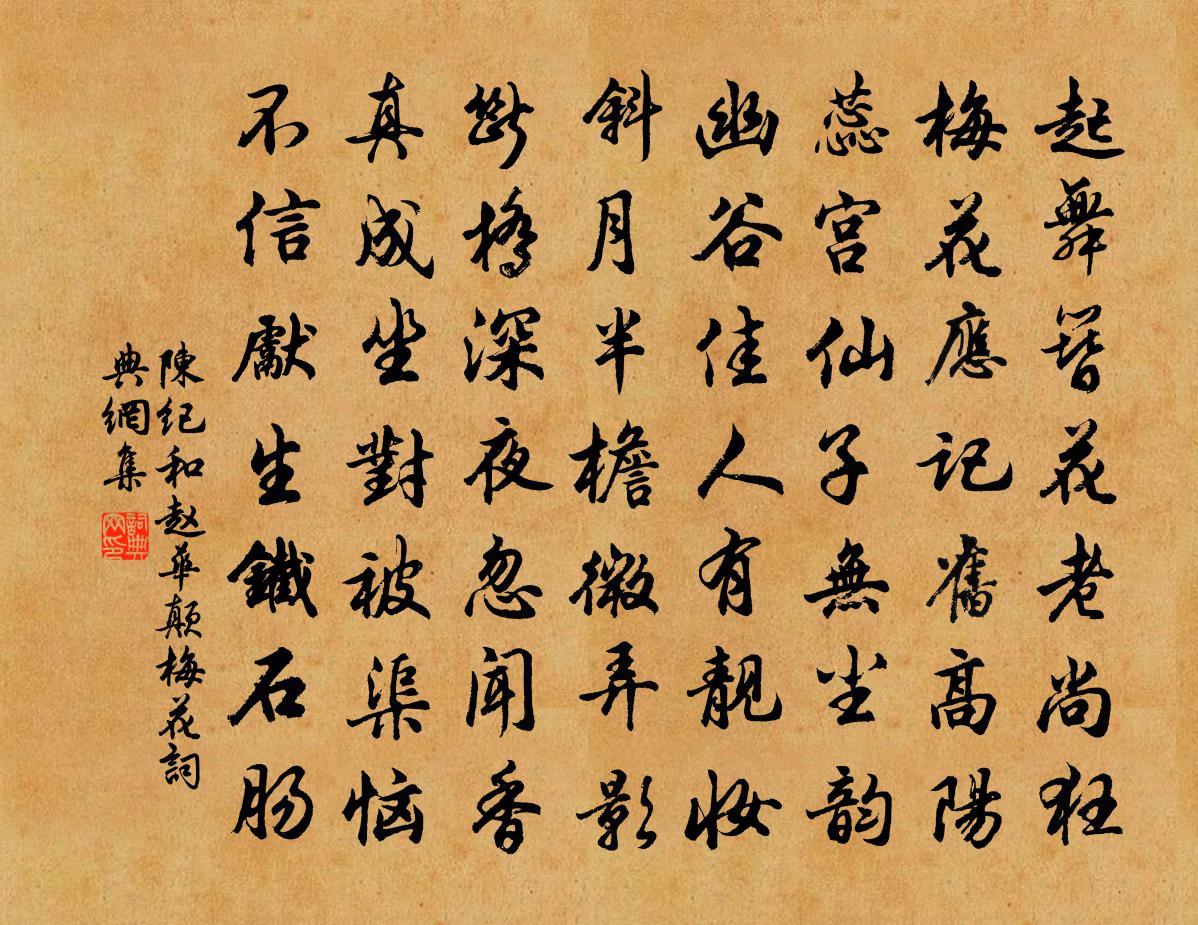 起舞簪花老尚狂
梅花應記舊高陽
蕊宮仙子無塵韵
幽谷佳人有靚妝
斜月半檐微弄影
斷橋深夜忽聞香
真成坐對被渠恼
不信獻生鐵石肠
陳紀和赵華颠梅花詞
典網集
詞典网印